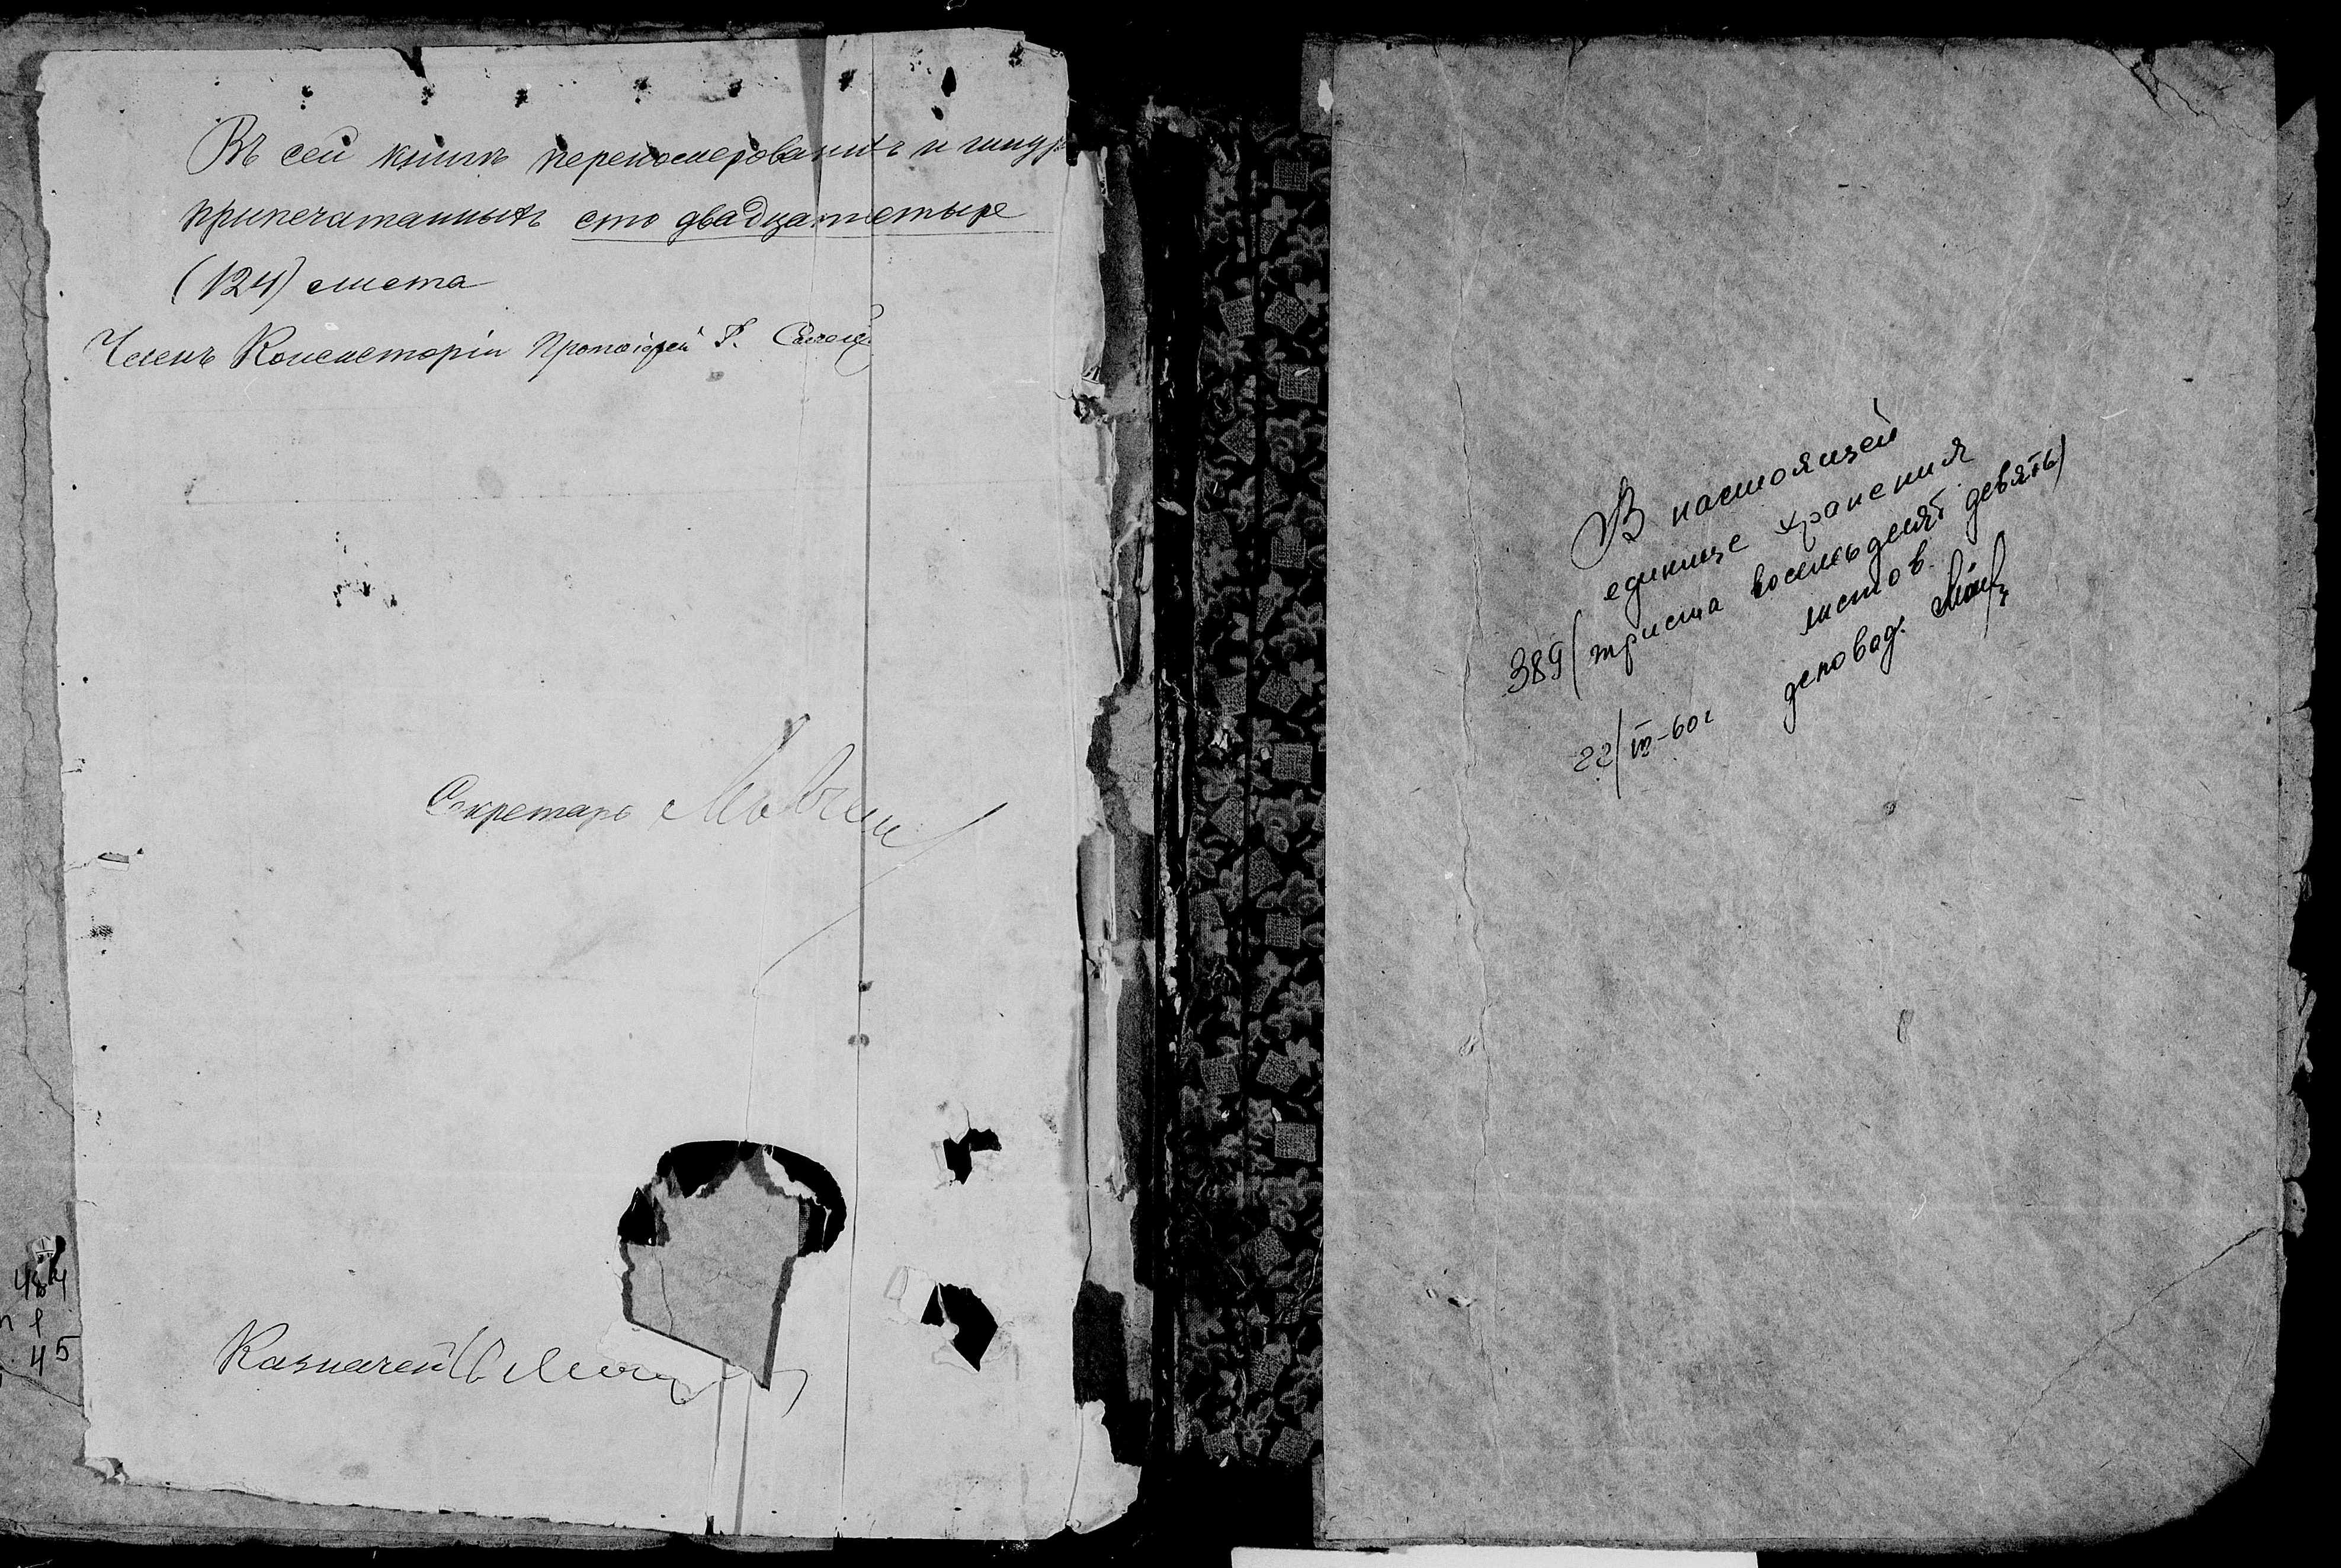 Въ сей книгѣ перенумерованныхъ и шнур
припечатанныхъ сто двадцатчетыре
(124) листа
Членъ Консисторіи Протоіерей
Секретарь
Казначей
484
45
В настоящей
единице хранения
389 (триста восемьдесят девять)
листов.
22/III-60г деловод.